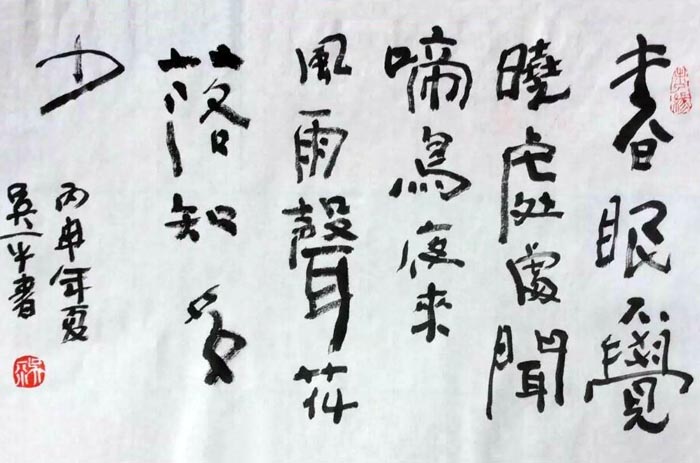 春眠不覺
曉處處聞
啼鳥夜來
風雨聲花
落知多
少
丙申年夏
吳一平書